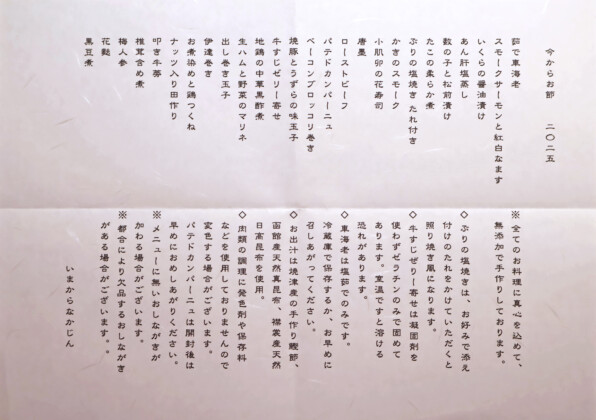 今からお節　二〇二五
茹で車海老
スモークサーモンと紅白なます
いくらの醤油漬け
あん肝塩蒸し
数の子と松前漬け
たこの柔らか煮
ぶりの塩焼き たれ付き
かきのスモーク
小肌卯の花寿司
唐墨
ローストビーフ
パテドカンパーニュ
ベーコンブロッコリ巻き
焼豚とうずらの味玉子
牛すじゼリー寄せ
地鶏の中華黒酢煮
生ハムと野菜のマリネ
出し巻き玉子
伊達巻き
お煮染めと鶏つくね
ナッツ入り田作り
叩き牛蒡
椎茸含め煮
梅人参
花麩
黒豆煮
※全てのお料理に真心を込めて、
無添加で手作りしております。
◇ぶりの塩焼きは、お好みで添え
付けのたれをかけていただくと
照り焼き風になります。
◇牛すじゼリー寄せは凝固剤を
使わずゼラチンのみで固めて
あります。室温ですと溶ける
恐れがあります。
◇車海老は塩茹でのみです。
冷蔵庫で保存するか、お早めに
召しあがってください。
◇お出汁は焼津産の手作り鰹節、
函館産天然真昆布、襟裳産天然
日高昆布を使用。
◇肉類の調理に発色剤や保存料
などを使用しておりませんので
変色する場合がございます。
パテドカンパーニュは開封後は
早めにおめしあがりください。
※メニューに無いおしながきが
加わる場合がございます。
※都合により欠品するおしながき
がある場合がございます。。
いまからなかじん